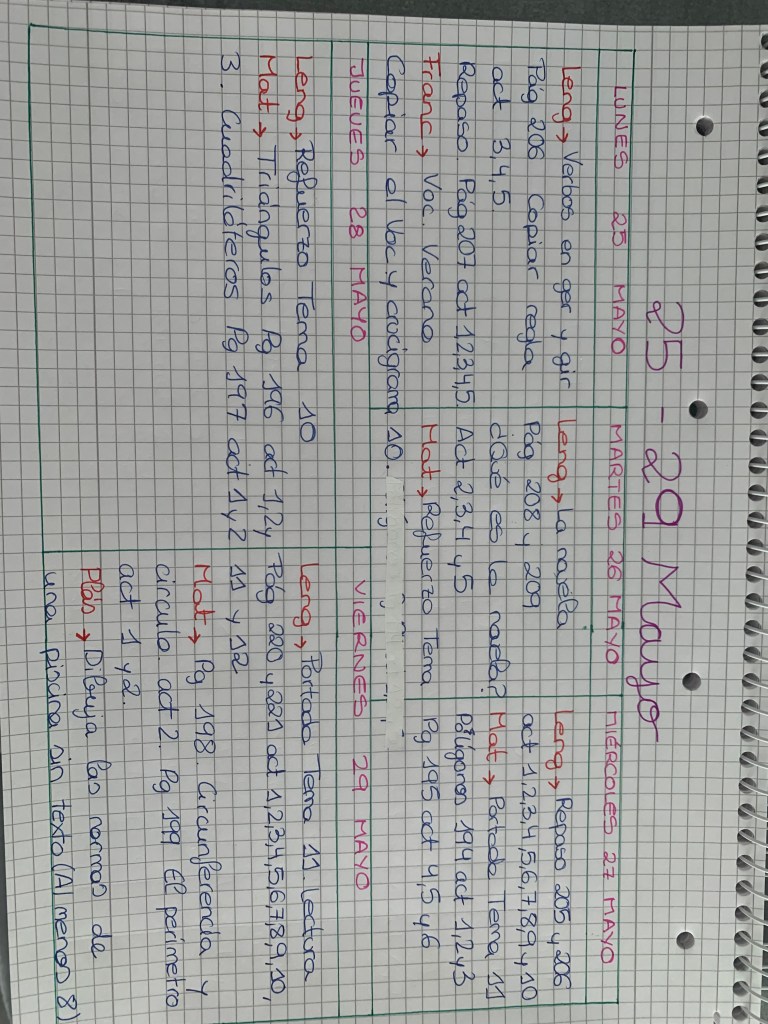 25 - 29 Mayo
LUNES 25 MAYO
Leng → Verbos en ger y gir
Pág 206 Copiar regla
act 3,4,5.
Repaso. Pág 207 act 1,2,3,4,5.
Franc → Voc. Verano
Copiar el Voc y crucigrama
MARTES 26 MAYO
Leng → La novela
Pág 208 y 209
¿Qué es la novela?
Act 2,3,4 y 5
Mat → Refuerzo Tema
10.
MIÉRCOLES 27 MAYO
Leng → Repaso 205 y 206
act 1,2,3,4,5,6,7,8,9 y 10
Mat → Portada Tema 11
Polígonos 194 act 1,2 y 3
Pg 195 act 4,5 y 6
JUEVES 28 MAYO
Leng → Refuerzo Tema 10
Mat → Triángulos Pg 196 act 1,2 y
3. Cuadriláteros Pg 197 act 1 y 2
VIERNES 29 MAYO
Leng → Portada Tema 11. Lectura
Pág 220 y 221 act 1,2,3,4,5,6,7,8,9,10,
11 y 12
Mat → Pg 198. Circunferencia y
círculo. act 2. Pg 199 El perímetro
act 1 y 2.
Plás → Dibuja las normas de
una piscina sin texto (Al menos 8)